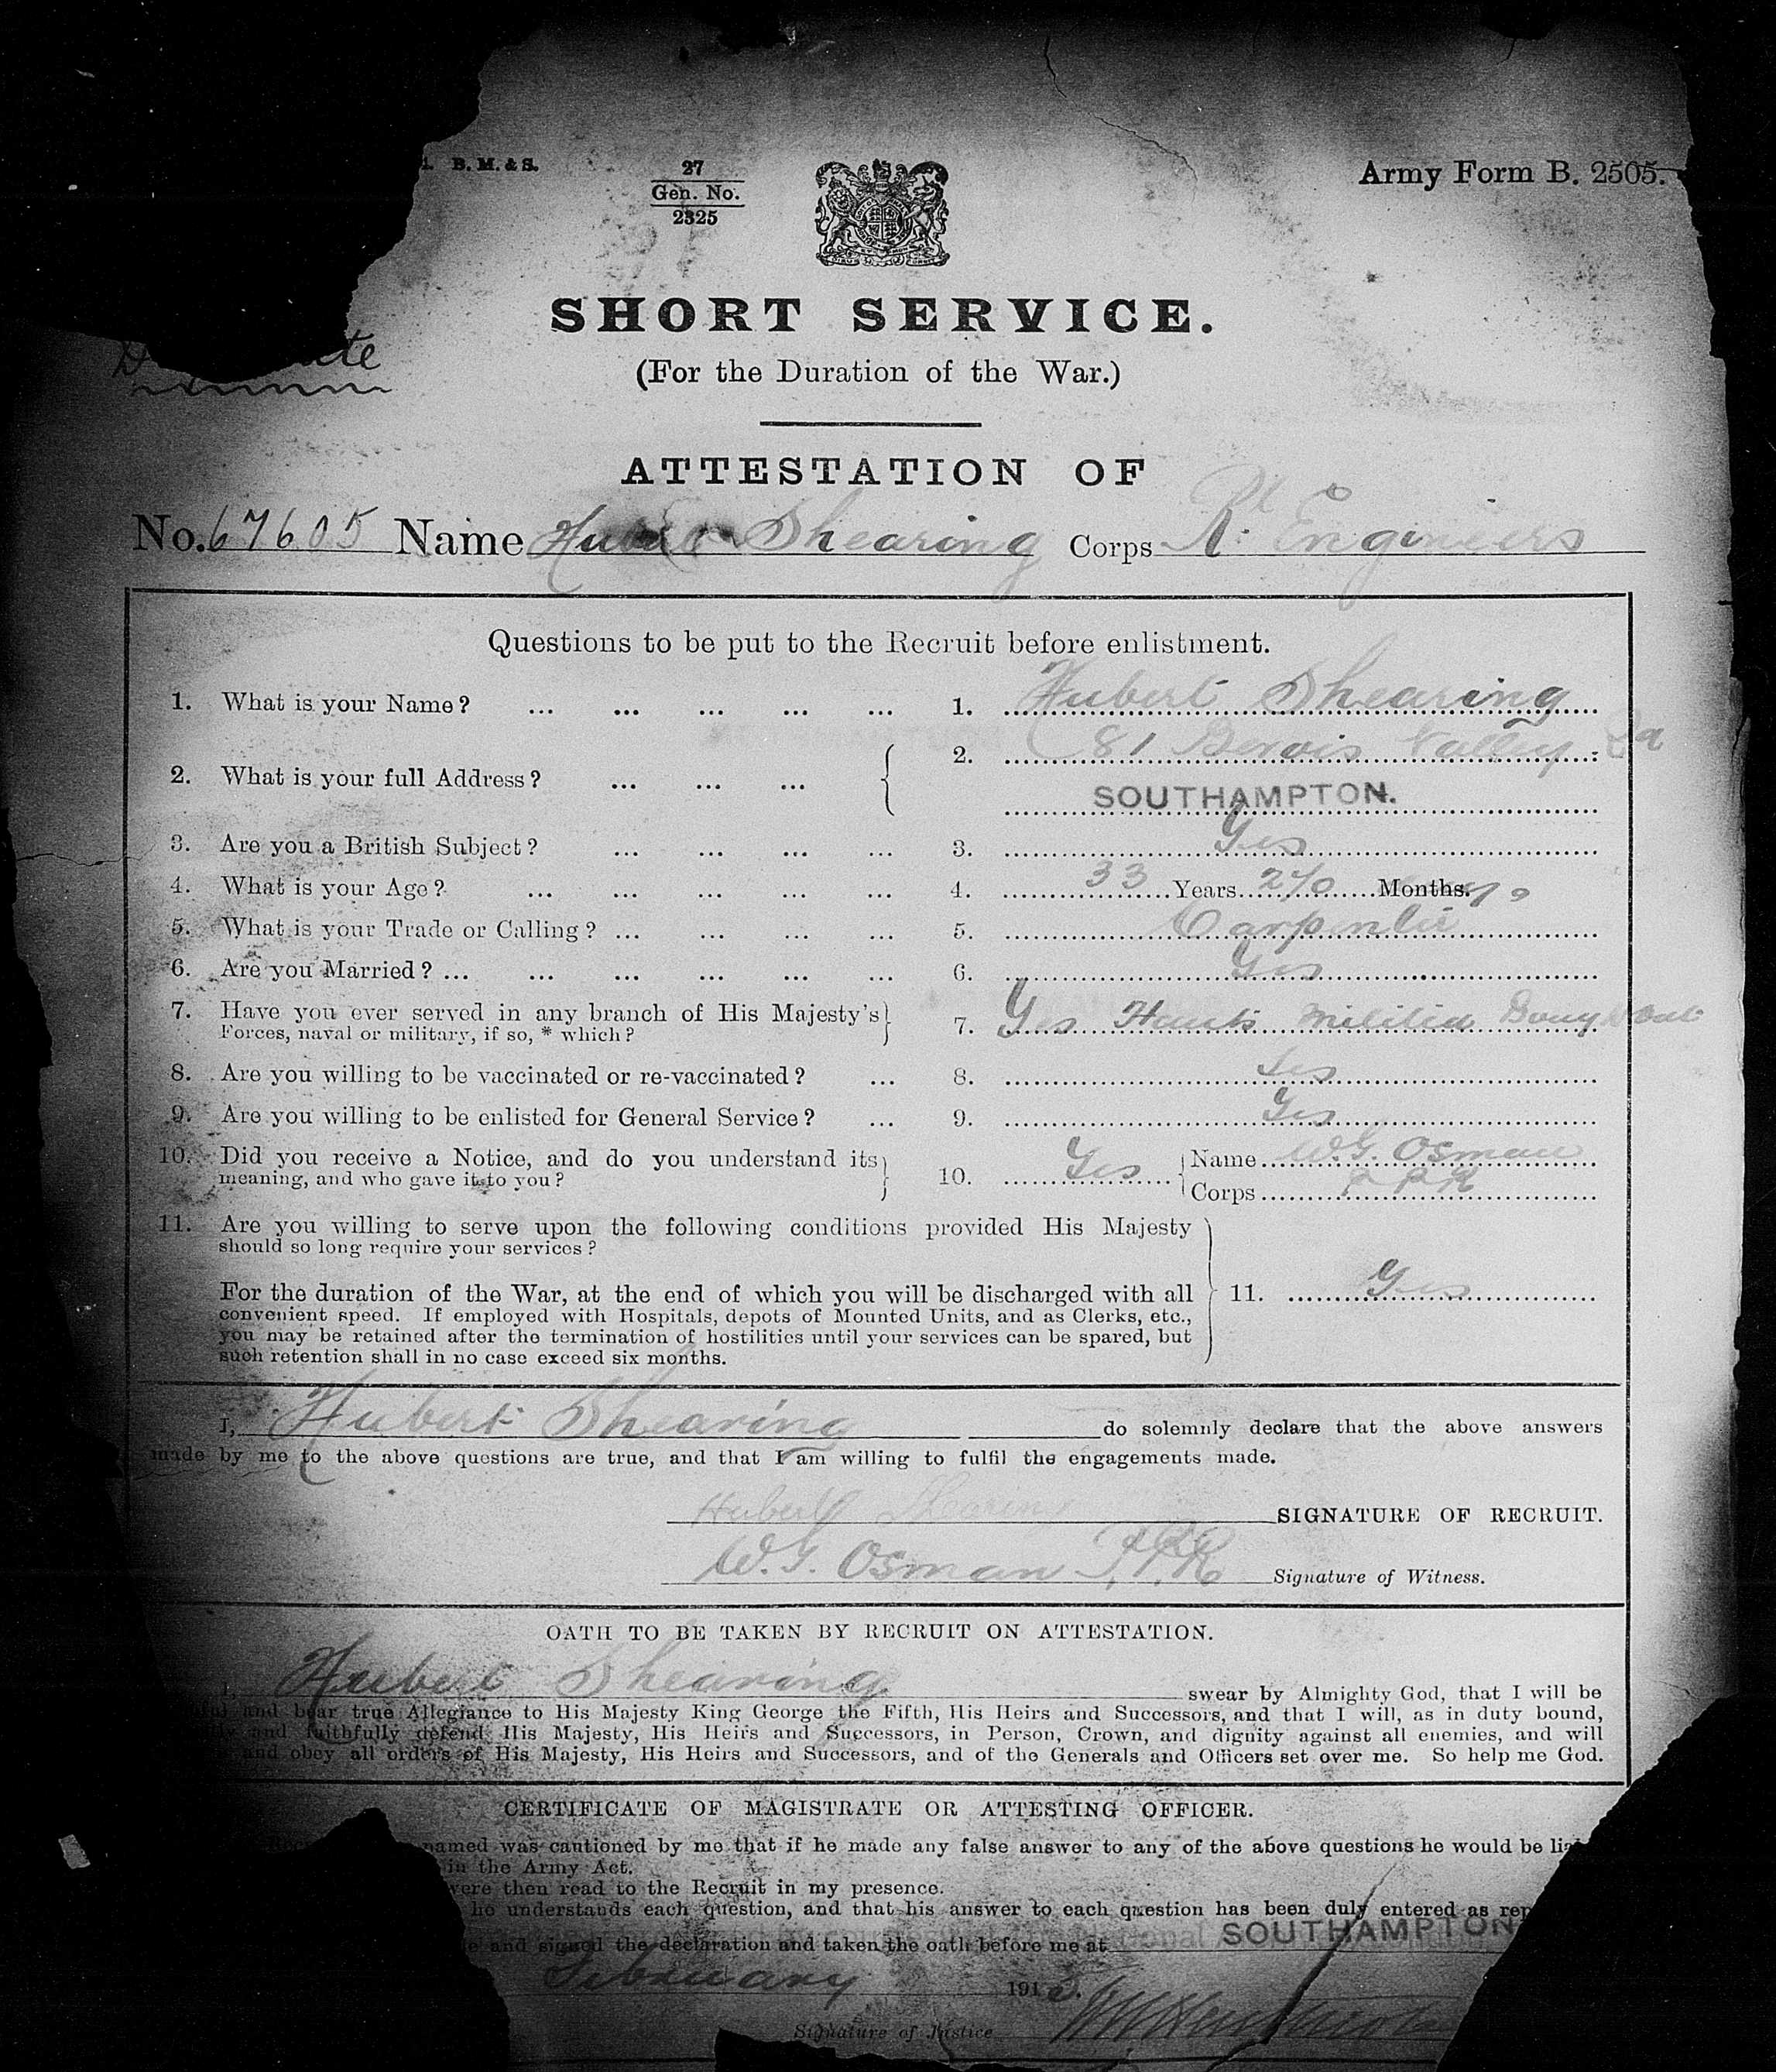 B. M. & S.
27
Gen. No.
2325
Army Form B. 2505.
SHORT SERVICE.
(For the Duration of the War.)
ATTESTATION OF
No. 67605 Name Hubert Shearing Corps Rl. Engineers
Questions to be put to the Recruit before enlistment.
1. What is your Name? ... ... ... ... ... 1. Hubert Shearing
2. What is your full Address? ... ... ... 2. 81 Valley
SOUTHAMPTON.
3. Are you a British Subject? ... ... ... ... 3. Yes
4. What is your Age? ... ... ... ... ... 4. 33 Years 240 Months.
5. What is your Trade or Calling? ... ... ... ... 5. Carpenter
6. Are you Married? ... ... ... ... ... ... 6. Yes
7. Have you ever served in any branch of His Majesty's
Forces, naval or military, if so, * which? 7. Yes Hants Militia
8. Are you willing to be vaccinated or re-vaccinated? ... 8. Yes
9. Are you willing to be enlisted for General Service? ... 9. Yes
10. Did you receive a Notice, and do you understand its
meaning, and who gave it to you? 10. Yes Name W.G. Osman
Corps
11. Are you willing to serve upon the following conditions provided His Majesty
should so long require your services?
For the duration of the War, at the end of which you will be discharged with all 11. Yes
convenient speed. If employed with Hospitals, depots of Mounted Units, and as Clerks, etc.,
you may be retained after the termination of hostilities until your services can be spared, but
such retention shall in no case exceed six months.
I, Hubert Shearing do solemnly declare that the above answers
made by me to the above questions are true, and that I am willing to fulfil the engagements made.
Hubert Shearing SIGNATURE OF RECRUIT.
W.G. Osman Signature of Witness.
OATH TO BE TAKEN BY RECRUIT ON ATTESTATION.
I, Hubert Shearing swear by Almighty God, that I will be
and bear true Allegiance to His Majesty King George the Fifth, His Heirs and Successors, and that I will, as in duty bound,
and faithfully defend His Majesty, His Heirs and Successors, in Person, Crown, and dignity against all enemies, and will
and obey all orders of His Majesty, His Heirs and Successors, and of the Generals and Officers set over me. So help me God.
CERTIFICATE OF MAGISTRATE OR ATTESTING OFFICER.
named was cautioned by me that if he made any false answer to any of the above questions he would be
in the Army Act.
were then read to the Recruit in my presence.
he understands each question, and that his answer to each question has been duly entered as
and signed the declaration and taken the oath before me at SOUTHAMPTON
February 191
Signature of Justice